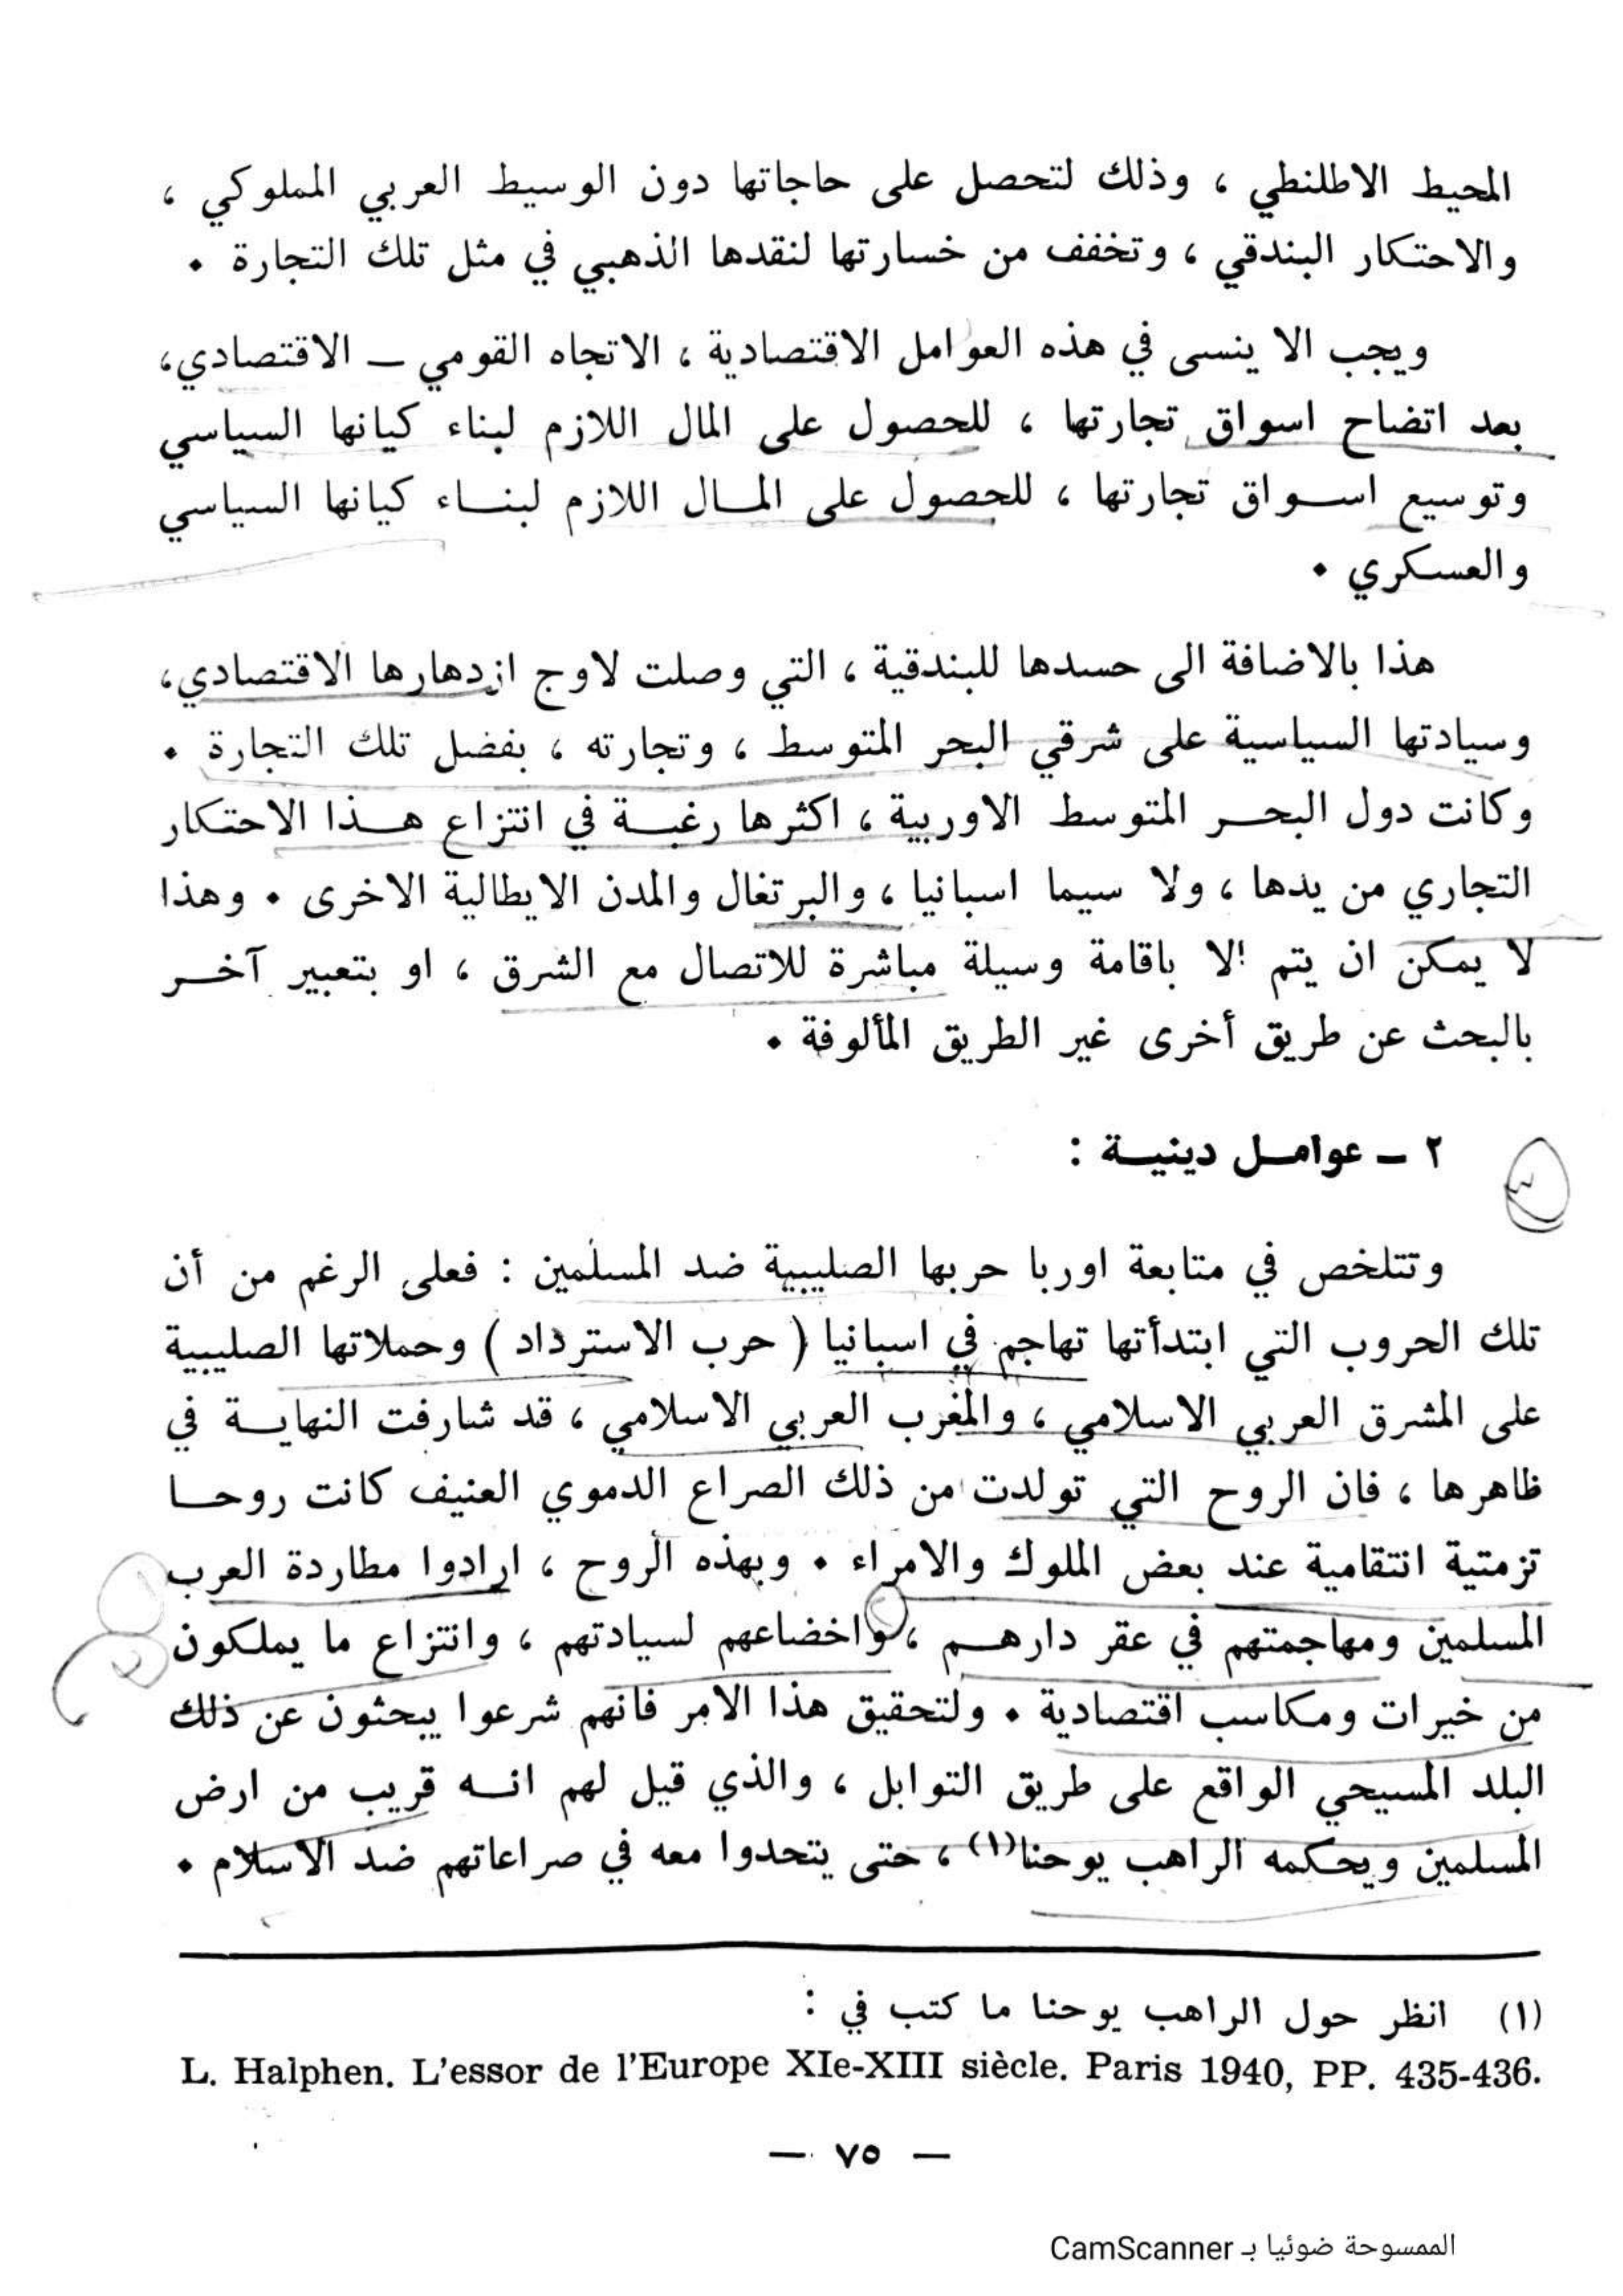 المحيط الاطلنطي ، وذلك لتحصل على حاجاتها دون الوسيط العربي المملوكي ،
والاحتكار البندقي ، وتخفف من خسارتها لنقدها الذهبي في مثل تلك التجارة •
ويجب الا ينسى في هذه العوامل الاقتصادية ، الاتجاه القومي – الاقتصادي،
بعد اتضاح اسواق تجارتها ، للحصول على المال اللازم لبناء كيانها السياسي
وتوسيع اسواق تجارتها ، للحصول على المال اللازم لبناء كيانها السياسي
والعسكري •
هذا بالاضافة الى حسدها للبندقية ، التي وصلت لاوج ازدهارها الاقتصادي،
وسيادتها السياسية على شرقي البحر المتوسط ، وتجارته ، بفضل تلك التجارة •
وكانت دول البحر المتوسط الاوربية ، اكثرها رغبة في انتزاع هذا الاحتكار
التجاري من يدها ، ولا سيما اسبانيا ، والبرتغال والمدن الايطالية الاخرى • وهذا
لا يمكن ان يتم الا باقامة وسيلة مباشرة للاتصال مع الشرق ، او بتعبير آخر
بالبحث عن طريق أخرى غير الطريق المألوفة •
٢ – عوامل دينية :
وتتلخص في متابعة اوربا حربها الصليبية ضد المسلمين : فعلى الرغم من أن
تلك الحروب التي ابتدأتها تهاجم في اسبانيا ( حرب الاسترداد ) وحملاتها الصليبية
على المشرق العربي الاسلامي ، والمغرب العربي الاسلامي ، قد شارفت النهاية في
ظاهرها ، فان الروح التي تولدت من ذلك الصراع الدموي العنيف كانت روحا
تزمتية انتقامية عند بعض الملوك والامراء • وبهذه الروح ، ارادوا مطاردة العرب
المسلمين ومهاجمتهم في عقر دارهم ، واخضاعهم لسيادتهم ، وانتزاع ما يملكون
من خيرات ومكاسب اقتصادية • ولتحقيق هذا الامر فانهم شرعوا يبحثون عن ذلك
البلد المسيحي الواقع على طريق التوابل ، والذي قيل لهم انه قريب من ارض
المسلمين ويحكمه الراهب يوحنا(١) ، حتى يتحدوا معه في صراعاتهم ضد الاسلام •
(١) انظر حول الراهب يوحنا ما كتب في :
L. Halphen. L'essor de l'Europe XIe-XIII siècle. Paris 1940, PP. 435-436.
— ٧٥ —
الممسوحة ضوئيا بـ CamScanner